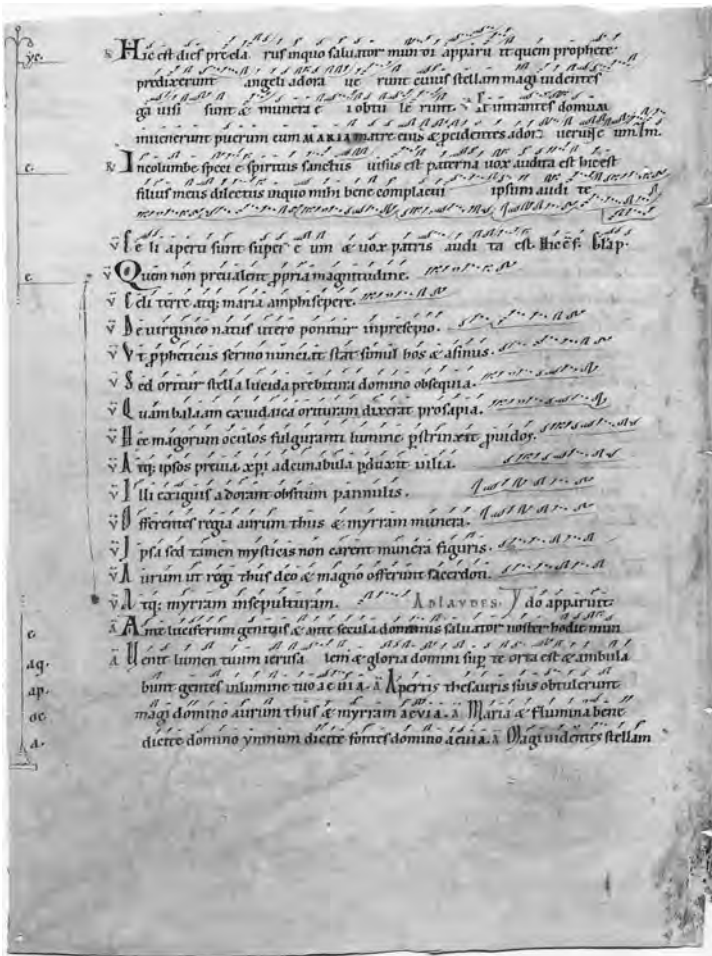 yc. R Hic est dies precla rus inquo saluator mun di apparu it quem prophete
predixerunt angeli adora ue runt cuius stellam magi uidentes
ga uisi sunt & munera e i obtu le runt. V Et intrantes domum
inuenerunt puerum cum MARIA matre eius & pcidentes ador
c. R Incolumbe speci e spiritus sanctus uisus est paterna uox audita est hic est
filius meus dilectus inquo mihi bene complacui ipsum audi te
V Ce li aperti sunt super e um & uox patris audi ta est. Hic
c. V Quem non preualent ppria magnitudine.
V Celi terre atq; maria amphisepere.
V De uirgineo natus utero ponitur inpresepio.
V Vt ppheticus sermo nunciat stat simul bos & asinus.
V Sed oritur stella lucida prebitura domino obsequia.
V Quam balaam exiudaica orituram dixerat prosapia.
V Hec magorum oculos fulguranti lumine pstrinxit puidos.
V Atq; ipsos preuia xpi adcunabula pduxit uilia.
V Illi exiguis adorant obsitum pannulis.
V Offerentes regia aurum thus & myrram munera.
V Ipsa sed tamen mysticis non carent munera figuris.
V Aurum ut regi thus deo & magno offerunt sacerdoti.
V Atq; myrram insepulturam. AD LAVDES. do apparuit.
c. A Ante luciferum genitus & ante secula dominus saluator noster hodie mun
aq. A Uenit lumen tuum ierusa lem & gloria domini sup te orta est & ambula
ap. bunt gentes inlumine tuo aeuia. A Apertis thesauris suis obtulerunt
oc. magi domino aurum thus & myrram aeuia. A Maria & flumina bene
a. dicite domino ymnum dicite fontes domino aeuia. A Magi uidentes stellam